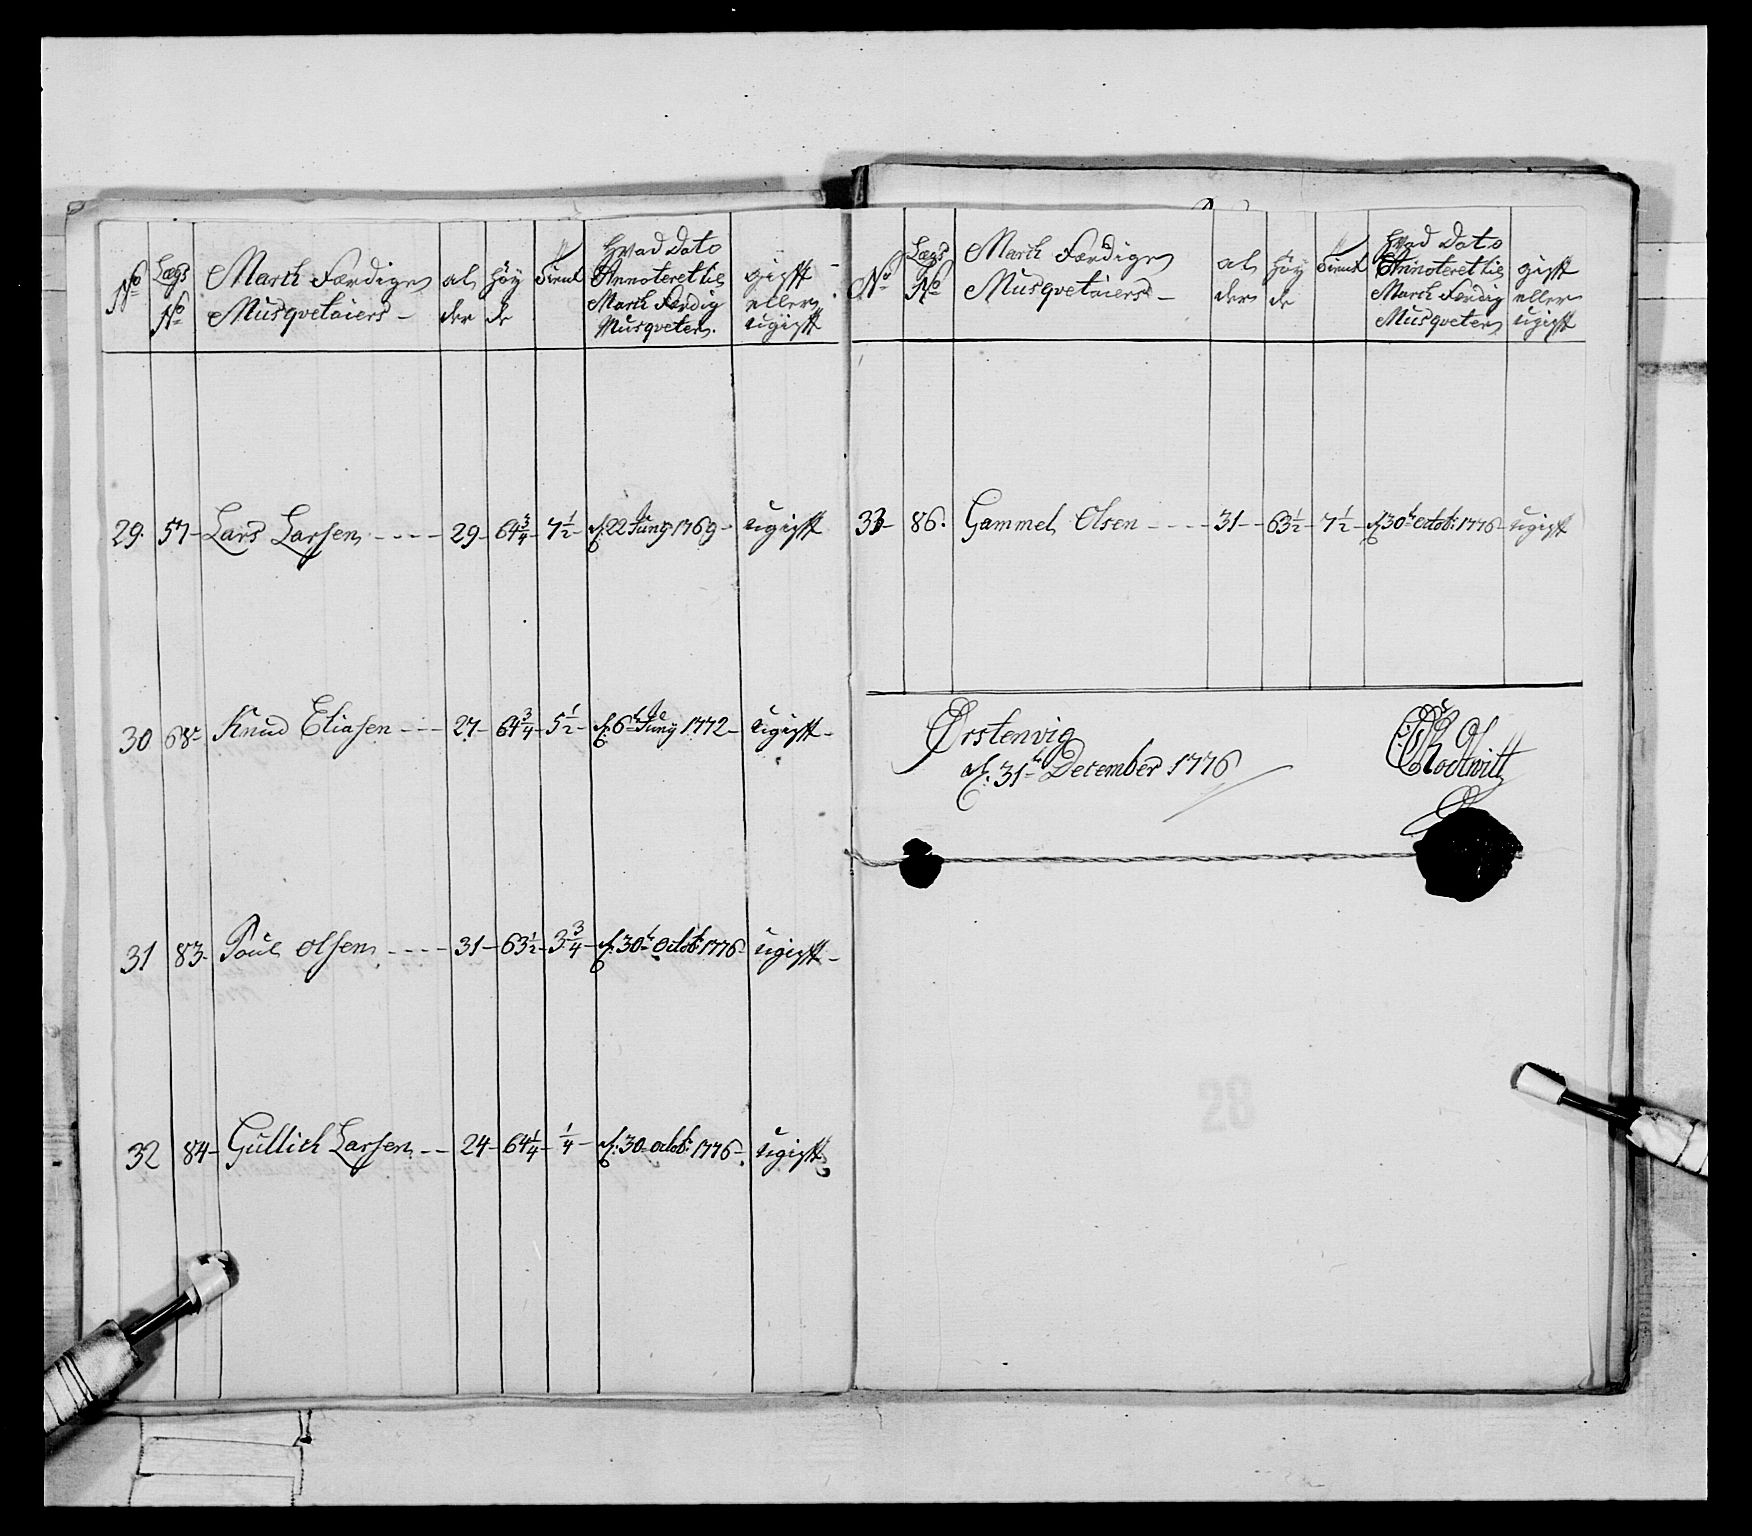 No | Lægs No | March Færdiges Musqvetaiers - | al der | Høy de | Tient | Hvad Dato Annoteret til March Færdig Musqveter. | gifft eller ugifft
29. | 57- | Lars Larsen ---- | 29- | 64 3/4- | 7 1/2- | d: 22de Juny 1769- | ugifft
30 | 68- | Knud Eliasen --- | 27- | 64 3/4- | 5 1/2- | d: 6te Juny 1772- | ugifft-
31 | 83- | Poul Olsen ---- | 31- | 63 1/2- | 3 3/4- | d: 30te Octob: 1776- | ugifft-
32 | 84- | Gullich Larsen -- | 24- | 64 1/4- | 1/4- | d: 30- octob: 1776- | ugifft
No | Lægs No | March Færdiges Musqvetaiers - | al der | høy de | Tient | Hvad Dato Annoteret til March Færdig Musqveter | gifft eller ugifft
33- | 86. | Gammel Olsen ---- | 31- | 63 1/2- | 7 1/2- | d: 30te Octob: 1776- | ugifft
Ørstenvig
d: 31te December 1776
28